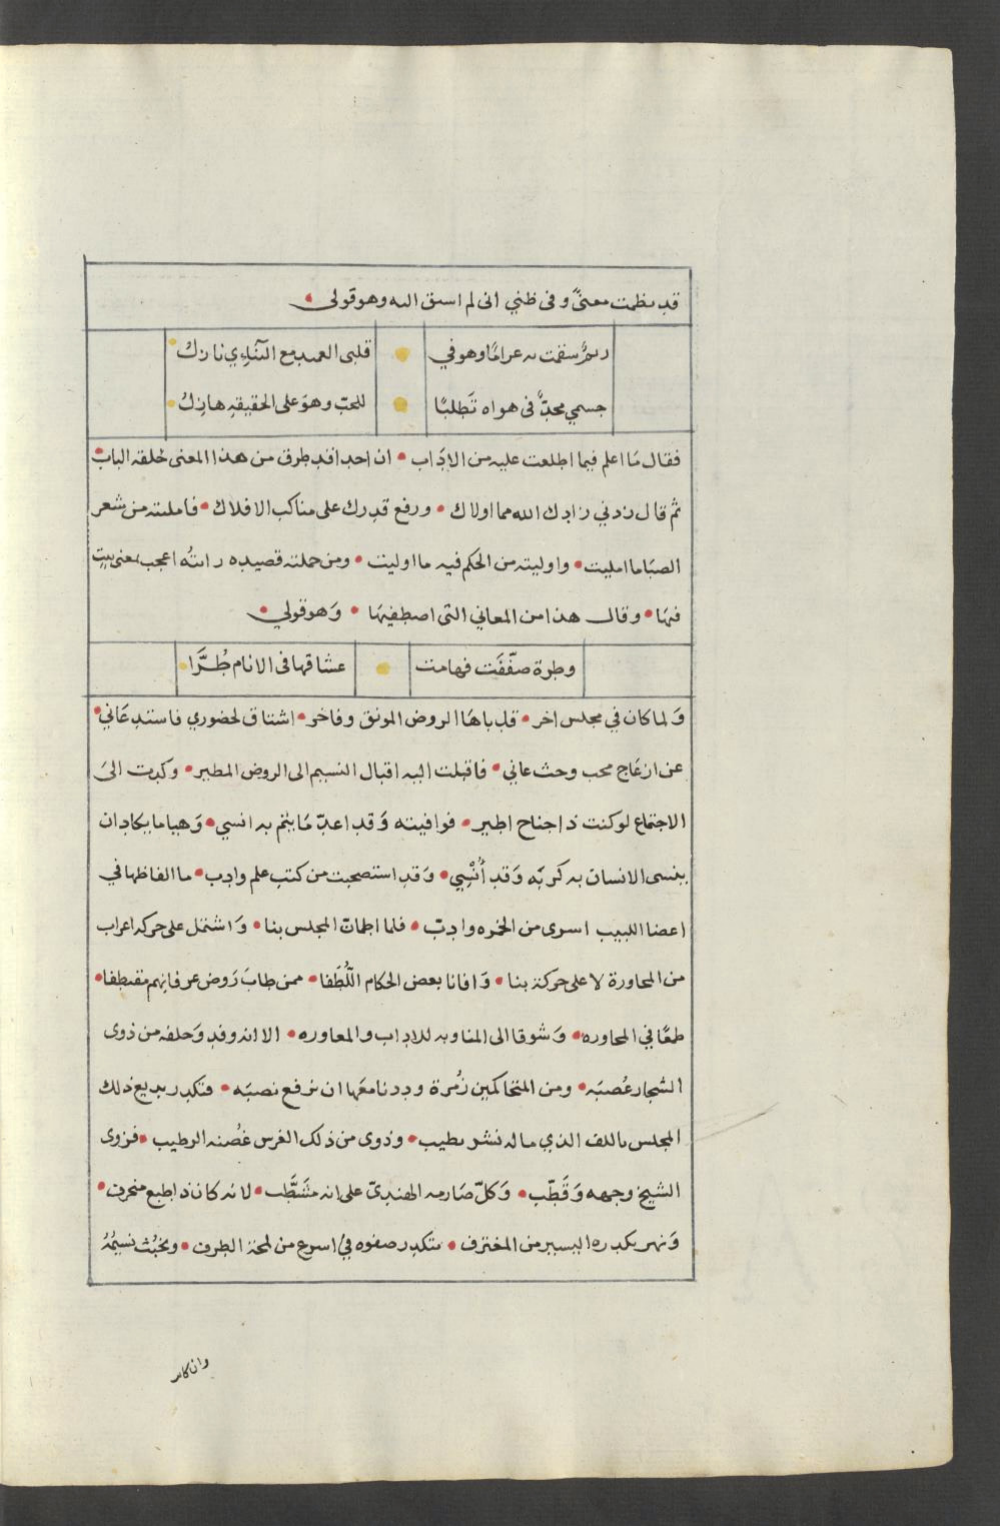 قد نظمت معنىً وفى ظني انى لم اسبق اليه وهو قولى
ريمٌ سقمت به غرامًا وهو في • قلبى العميد مع التنائِي نازكُ
جسمي مجدٌّ فى هواه تَطلبًا • للحبّ وهوَ على الحقيقه هازِكُ
فقال مَا اعلم فيما اطلعت عليه من الادَاب • ان احدا قد طرق من هذا المعنى لخلقه الباب •
ثم قال زدني زادك الله مما اولاك • ورفع قدرك على مناكب الافلاك • فامليته من شعر
الصبَا ما امليت • واوليته من الحكم فيه ما اوليت • ومن جملته قصيده رايتُه اعجب بمعنى بيت
فيهَا • وقال هذا من المعاني التى اصطفيهَا • وَهو قولي •
وطرة صفّفَت فهامت • عشاقها فى الانام طُرَّا
وَلما كان في مجلس اخر • قد باهَا الروض المونق وفاخر • اشتاق لحضوري فاستدعَاني •
عن ازعَاج محب وحث عانى • فاقبلت اليه اقبال النسيم الى الروض المطير • وكدت الىَ
الاجتماع لوكنت ذا جناح اطير • فوافيته وَقد اعدّ مَا يتم به انسي • وَهيا ما يكاد ان
ينسى الانسان به كربَه وَقد أُنْسِي • وَقد استصحبت من كتب علم وادب • ما الفاظها في
اعضا اللبيب اسرى من الخمره وادبّ • فلما اطمانّ المجلس بنا • وَاشتمل على حركه اعراب
من المحاورة لا على حركة بنا • وَافانا بعض الحكام اللُّطَفا • ممن طابَ رَوض عرفانهم مقتطفا •
طمعًا في المحاوره • وَشوقا الى المناوبه للاداب والمعاوره • الا انه وفد وَخلفه من ذوى
الشجار عُصبَه • ومن المتحاكمين زُمرة وددنا معَها ان نرفع نصبَه • فتكدر بديع ذلك
المجلس باللف الذي ماله نشر بطيب • وذوى من ذلك الغرس غُصنه الرطيب • فزوى
الشيخ وجهه وَقَطّب • وَكلّ صَارمه الهندىّ على انه مشَطَّب • لانه كان ذا طبع منحرف •
وَنهر يكدره اليسير من المغترف • يتكدر صفوه فيُ اسرع من لمحة الطرف • ويخبُث نسيمُهُ
وان كان